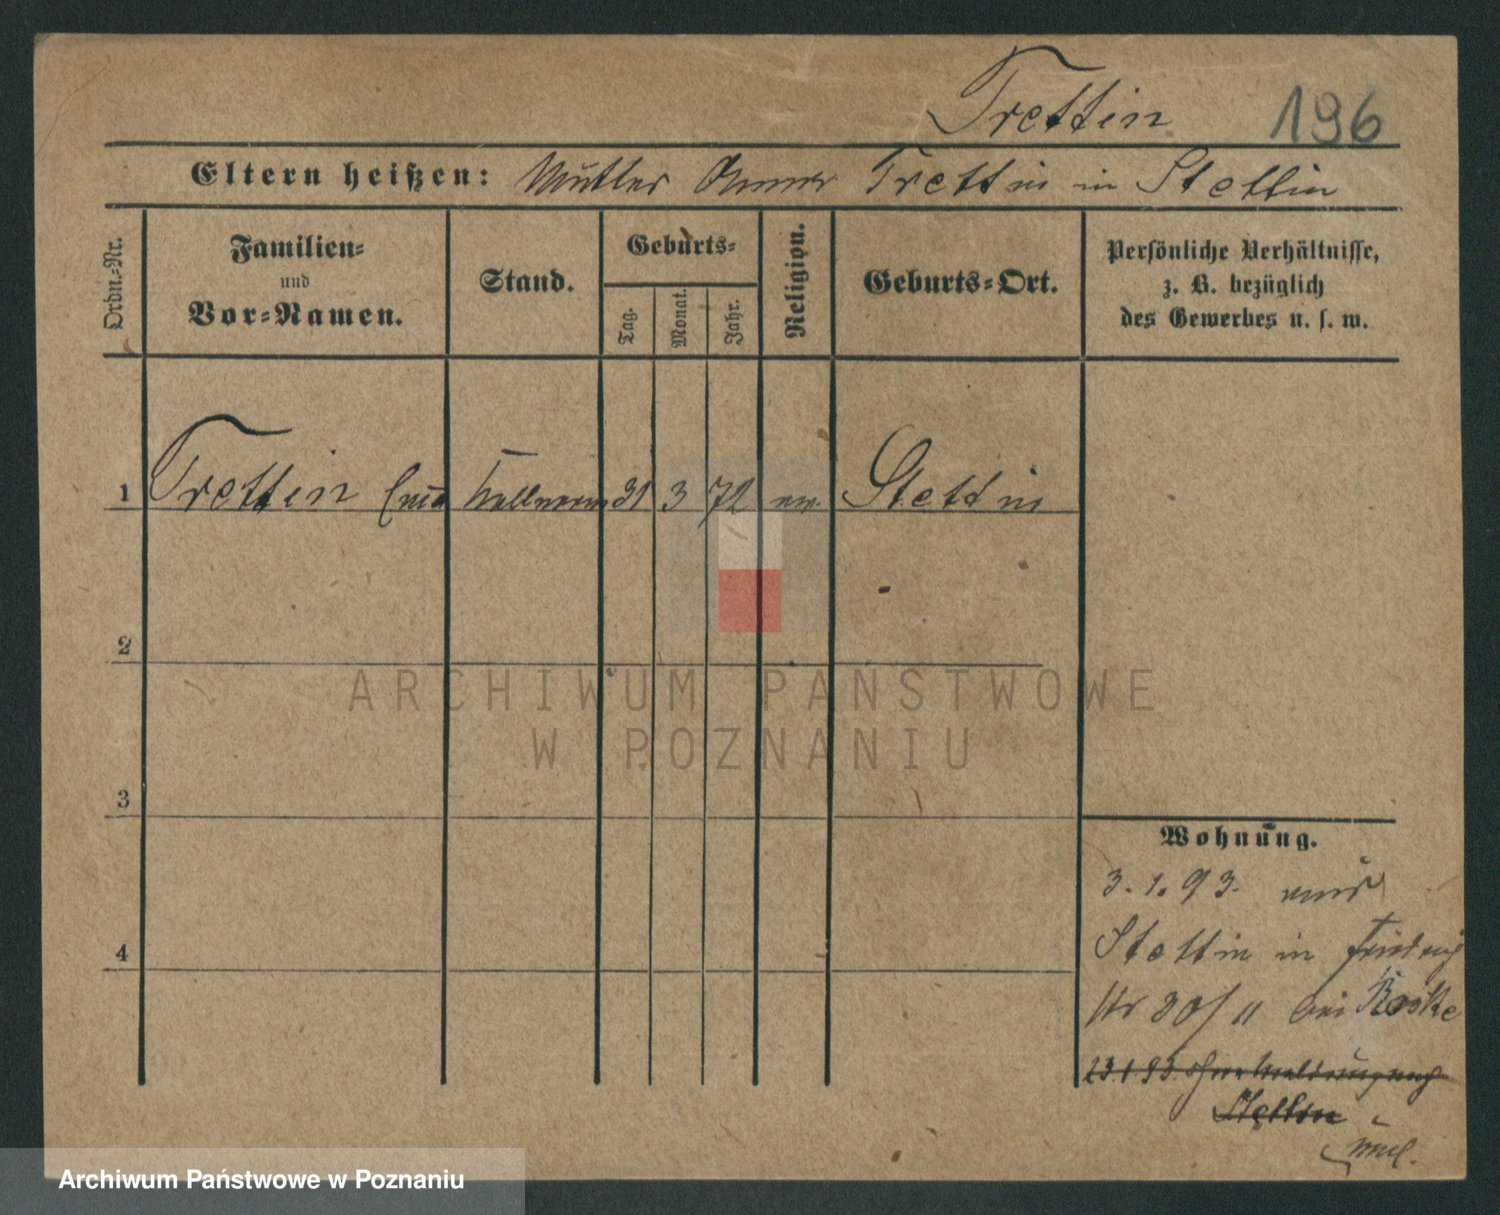 Trettin 196
Eltern heißen: Mutter Anna Trettin in Stettin
Ordn.-Nr.
Familien-
und
Vor-Namen.
Stand.
Geburts-
Tag.
Monat.
Jahr.
Religion.
Geburts-Ort.
Persönliche Verhältnisse,
z. B. bezüglich
des Gewerbes u. s. w.
1 Trettin 31 3 72 ev. Stettin
2
ARCHIWUM PAŃSTWOWE
W POZNANIU
3
Wohnung.
3.1.93.
Stettin in
4
20/II bei Roske
23.1.93. ohne Meldung nach
Stettin
Archiwum Państwowe w Poznaniu